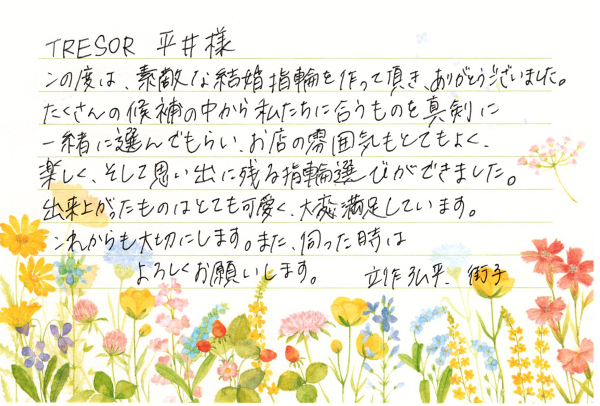 TRESOR 平井様
この度は、素敵な結婚指輪を作って頂き、ありがとうございました。
たくさんの候補の中から私たちに合うものを真剣に
一緒に選んでもらい、お店の雰囲気もとてもよく、
楽しく、そして思い出に残る指輪選びができました。
出来上がったものはとても可愛く、大変満足しています。
これからも大切にします。また、伺った時は
よろしくお願いします。 立作弘平、街子